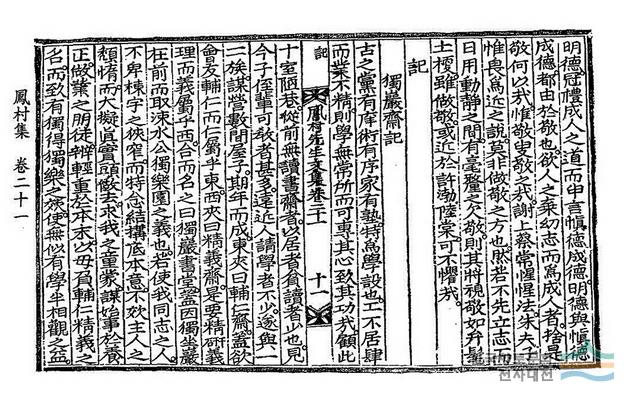 明德冠禮成人之道而申言愼德成德明德與愼德
成德都由於敬也欲人之棄幼志而爲成人者捨是
敬何以哉惟敬敬哉謝上蔡常惺惺法朱夫子
惟畏爲近之說莫非做敬之方也然若不先立志而
日用動靜之間有毫釐之欠敬則其將視敬如弁髦
土梗雖做敬或近於許渤陸棠可不懼哉
記
獨巖齋記
古之黨有庠術有序家有塾特爲學設也工不居肆
而業不精則學無常所而可專其心致其功哉顧此
記 鳳村先生文集卷二十一 十一
十室陋巷從前無讀書齋者以居者貧讀者少也見
今子侄輩可敎者甚多遠近人請學者不少遂與一
二族謀營數間屋子期年而成東夾曰輔仁齋蓋欲
會友輔仁而仁屬乎東西夾曰精義齋是要精硏義
理而義屬乎西合而名之曰獨巖書堂蓋因獨坐巖
在前而取涑水公獨樂園之義也若使我同志之人
不卑棟宇之狹窄而特念結搆底本意不欺主人之
頹惰而大擬眞實頭做去求我之童蒙謀始事於養
正做業之朋徒辨輕重於本末以毋負輔仁精義之
名而致有獨得獨樂之候使無似有學半相觀之益
鳳村集 卷二十一